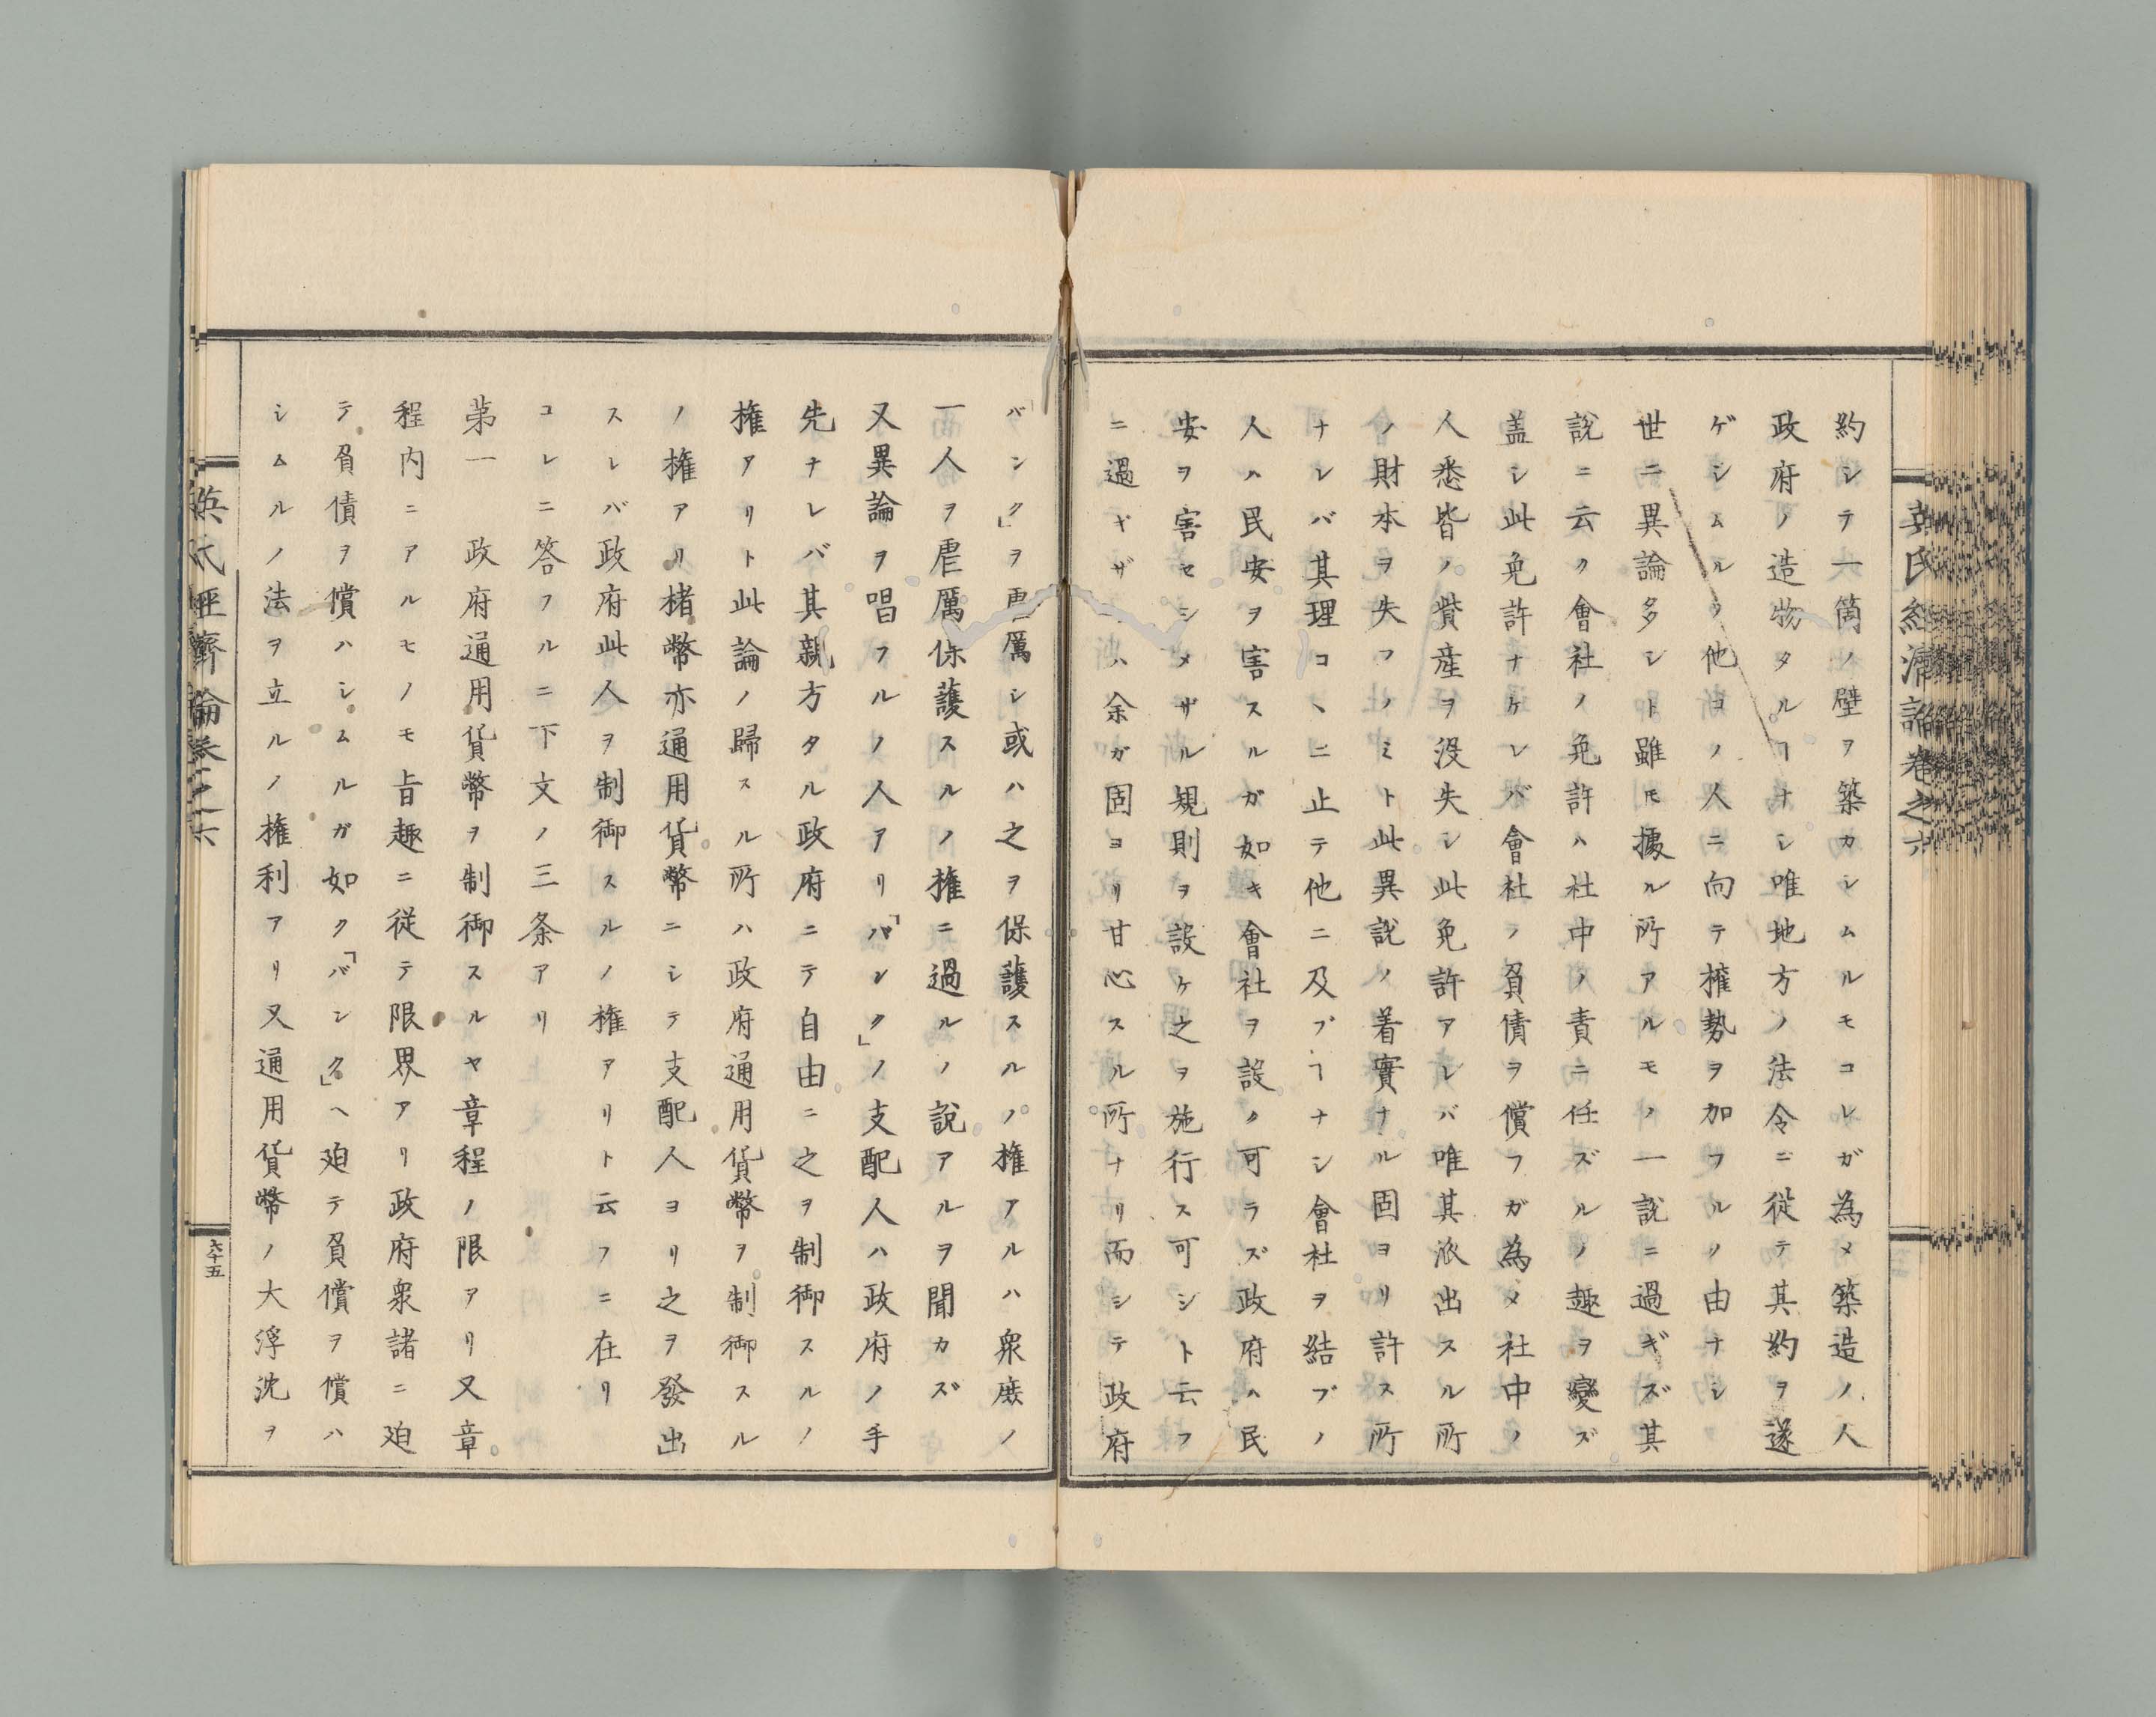 約シテ一箇ノ壁ヲ築カシムルモコレガ為メ築造ノ人
政府ノ造物タルヿナシ唯地方ノ法令ニ従テ其約ヲ遂
ゲシムルノ他ヨノ人ニ向テ権勢ヲ加フルノ由ナシ
世ニ異論多シト雖モ據ル所アルモノ一説ニ過ギズ其
説ニ云ク會社ノ免許ハ社中ノ責ニ任ズルノ趣ヲ變ズ
盖シ此免許ナケレバ會社ノ負債ヲ償フガ為メ社中ノ
人悉皆ノ貲産ヲ没失シ此免許アレバ唯其派出スル所
ノ財本ヲ失フノミト此異説ノ着實ナル固ヨリ許ス所
ナレバ其理コヽニ止テ他ニ及ブヿナシ會社ヲ結ブノ
人ハ民安ヲ害スルガ如キ會社ヲ設ク可ラズ政府ハ民
安ヲ害セシメザル規則ヲ設ケ之ヲ施行ス可シト云フ
ニ過ギザハ余ガ固ヨリ甘心スル所ナリ而シテ政府
英氏經濟論巻之六
バンク」ヲ厲シ或ハ之ヲ保護スルノ権アルハ衆庶ノ
一人ヲ虐厲保護スルノ権ニ過ルノ説アルヲ聞カズ
又異論ヲ唱フルノ人アリ「バンク」ノ支配人ハ政府ノ手
先ナレバ其親方タル政府ニテ自由ニ之ヲ制御スルノ
権アリト此論ノ歸スル所ハ政府通用貨幣ヲ制御スル
ノ権アリ楮幣亦通用貨幣ニシテ支配人ヨリ之ヲ發出
スレバ政府此人ヲ制御スルノ権アリト云フニ在リ
コレニ答フルニ下文ノ三条アリ
第一　政府通用貨幣ヲ制御スルヤ章程ノ限アリ又章
程内ニアルモノモ旨趣ニ従テ限界アリ政府衆諸ニ廹
テ負債ヲ償ハシムルガ如ク「バンク」ヘ廹テ負償ヲ償ハ
シムルノ法ヲ立ルノ権利アリ又通用貨幣ノ大浮沈ヲ
英氏經濟論巻之六
六十五